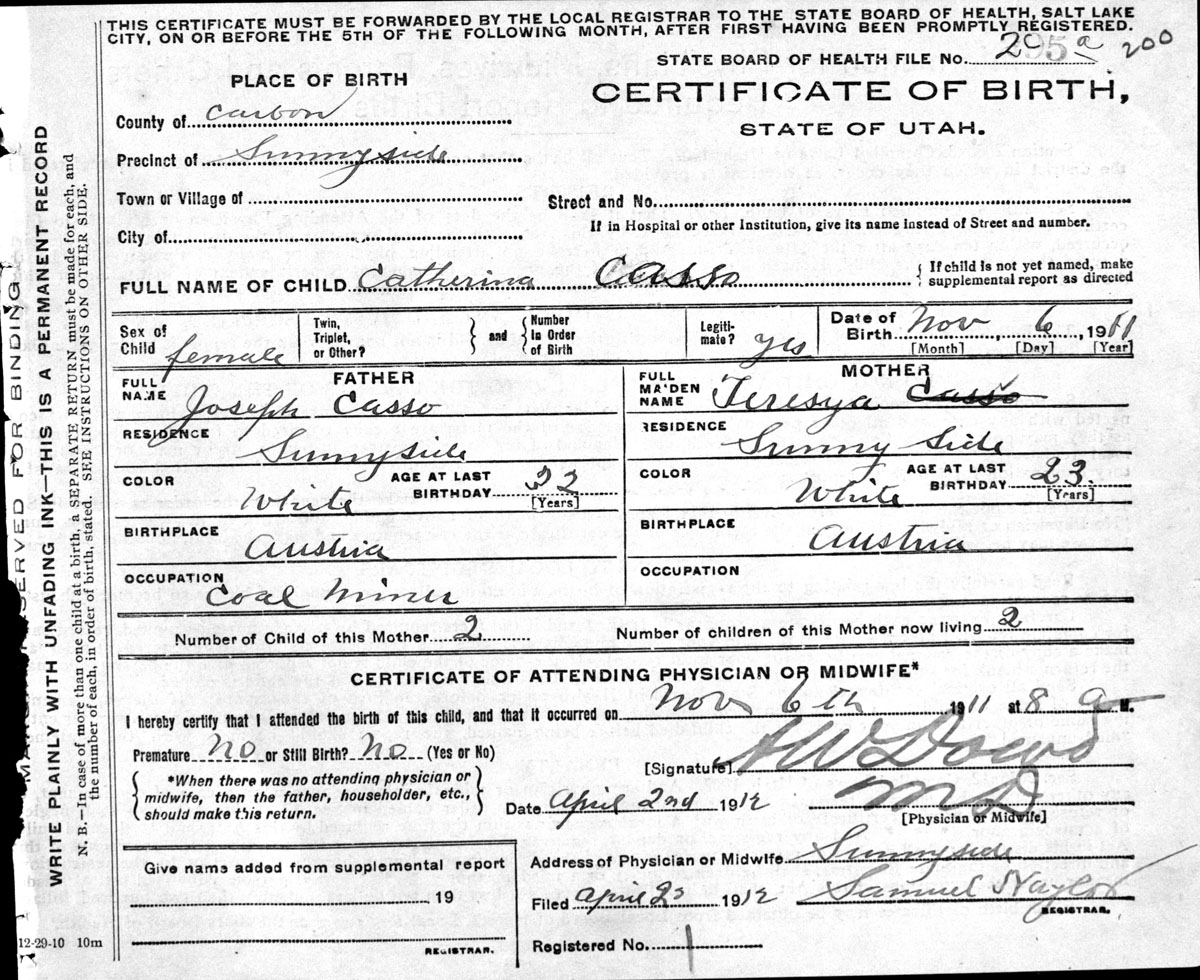 THIS CERTIFICATE MUST BE FORWARDED BY THE LOCAL REGISTRAR TO THE STATE BOARD OF HEALTH, SALT LAKE
CITY, ON OR BEFORE THE 5TH OF THE FOLLOWING MONTH, AFTER FIRST HAVING BEEN PROMPTLY REGISTERED.
STATE BOARD OF HEALTH FILE No. 295 a 200
PLACE OF BIRTH
CERTIFICATE OF BIRTH,
STATE OF UTAH.
County of Carbon
Precinct of Sunnyside
Town or Village of
Street and No.
If in Hospital or other Institution, give its name instead of Street and number.
City of
FULL NAME OF CHILD Catherina Casso
If child is not yet named, make
supplemental report as directed
Sex of
Child female
Twin,
Triplet,
or Other?
and
Number
in Order
of Birth
Legiti-
mate? yes
Date of
Birth Nov 6, 1911
[Month] [Day] [Year]
FATHER
FULL
NAME Joseph Casso
RESIDENCE Sunnyside
COLOR White
AGE AT LAST
BIRTHDAY
[Years]
BIRTHPLACE Austria
OCCUPATION Coal Miner
MOTHER
FULL
MAIDEN
NAME Teresya Casso
RESIDENCE Sunny Side
COLOR White
AGE AT LAST
BIRTHDAY 23
[Years]
BIRTHPLACE Austria
OCCUPATION
Number of Child of this Mother 2
Number of children of this Mother now living 2
CERTIFICATE OF ATTENDING PHYSICIAN OR MIDWIFE*
I hereby certify that I attended the birth of this child, and that it occurred on Nov 6th 1911 at 8 a M.
Premature No or Still Birth? No (Yes or No)
*When there was no attending physician or
midwife, then the father, householder, etc.,
should make this return.
[Signature] AW Dowd
MD
[Physician or Midwife]
Date April 2nd 1912
Give name added from supplemental report
19
REGISTRAR.
Address of Physician or Midwife Sunnyside
Filed April 2 1912 Samuel Naylor
REGISTRAR.
Registered No. 1
12-29-10 10m
SERVED FOR BINDING
WRITE PLAINLY WITH UNFADING INK—THIS IS A PERMANENT RECORD
N. B.—In case of more than one child at a birth, a SEPARATE RETURN must be made for each, and
the number of each, in order of birth, stated. SEE INSTRUCTIONS ON OTHER SIDE.